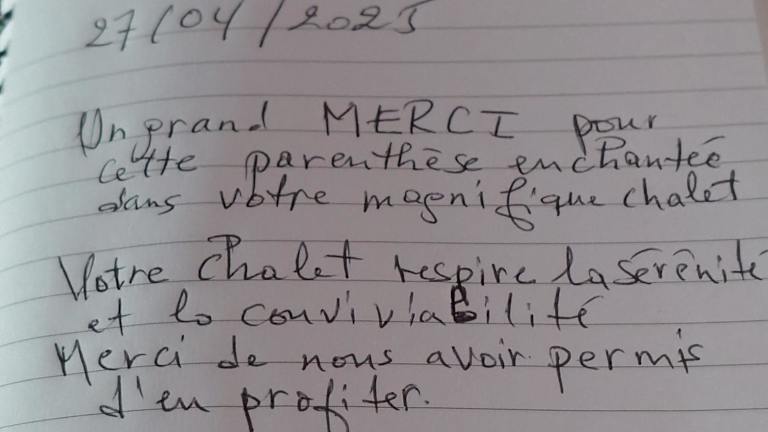 27/04/2025
Un grand MERCI pour
cette parenthèse enchantée
dans vôtre magnifique chalet
Votre chalet respire la sérénité
et la conviviabilité
Merci de nous avoir permis
d'en profiter.